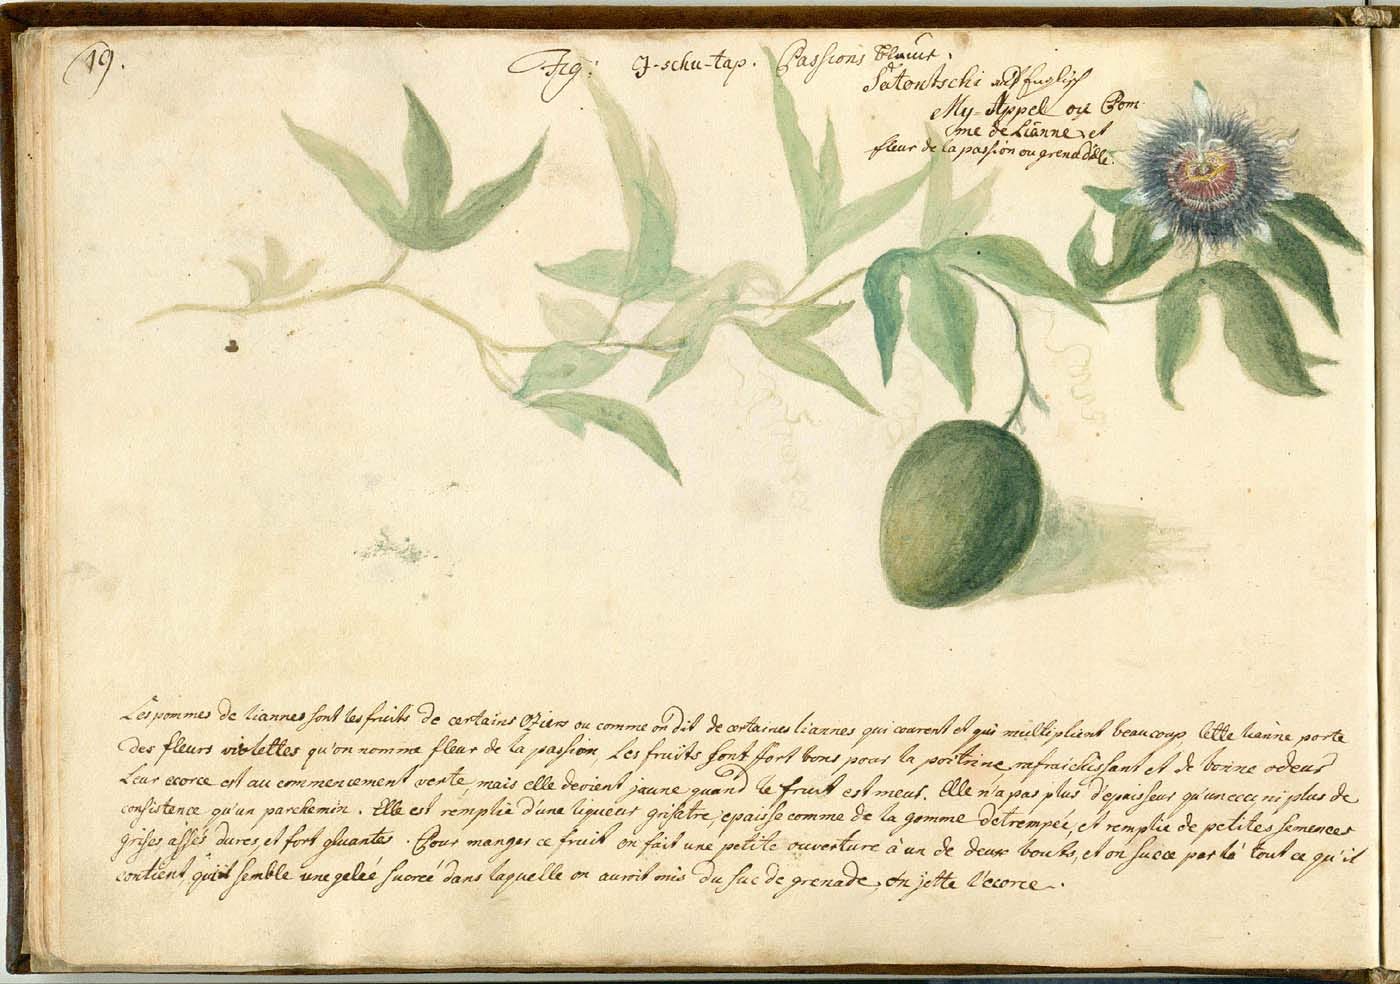 19.
Fig: J-schu-tap. Passions blaume.
Satontschi auf Englisch
My-Appel ou Pom-
me de Liänne, et
fleur de la passion ou grenadille.
Les pommes de liannes sont les fruits de certains Oziers ou comme on dit de certaines liannes qui courent et qui multiplient beaucoup Cette lianne porte
des fleurs violettes qu'on nomme fleur de la passion, Les fruits sont fort bons pour la poitrine, rafraichissant et de bonne odeur
Leur ecorce est au commencement verte, mais elle devient jaune quand le fruit est meur. Elle n'a pas plus d'epaisseur qu'un ecu, ni plus de
consistence qu'un parchemin. Elle est remplie d'une liqueur grisatre, epaisse comme de la gomme detrempée, et remplie de petites semences
grises assés dures, et fort gluantes. Pour manger ce fruit on fait une petite ouverture à un de deux bouts, et on succe par là tout ce qu'il
contient, qu'il semble une gelée sucrée dans laquelle on auroit mis du suc de grenade, On jette l'ecorce.